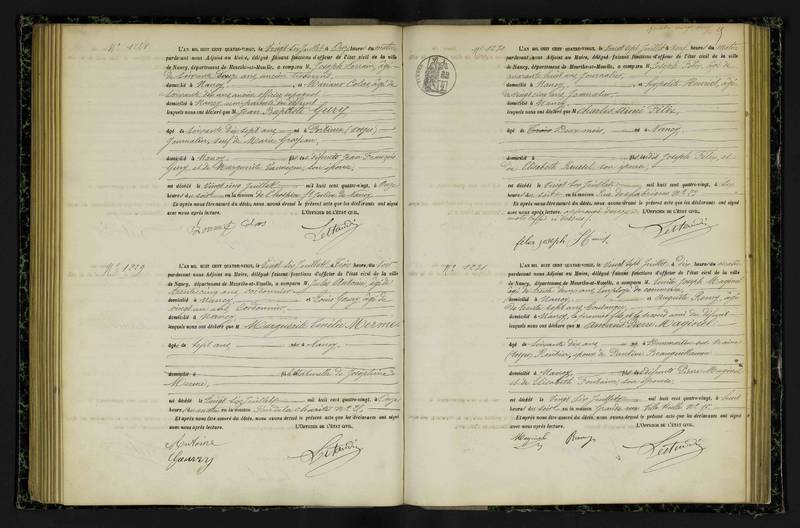 N° 1228
L'AN MIL HUIT CENT QUATRE-VINGT, le Vingt Six Juillet à Onze heures du matin
pardevant nous Adjoint au Maire, délégué faisant fonctions d'officier de l'état civil de la ville
de Nancy, département de Meurthe-et-Moselle, a comparu M. Joseph Lorrain, âgé
de soixante
domicilié à Nancy et Mariano Colas, âgé de
soixante dix ans ancien officier espagnol
domicilié à Nancy
lesquels nous ont déclaré que M Jean Baptiste Guery
âgé de soixante dix sept ans né à Portieux (Vosges)
Journalier, veuf de Marie Grosjean,
domicilié à Nancy fils de défunts Jean François
Guery et de Marguerite son épouse,
est décédé le vingt cinq Juillet mil huit cent quatre-vingt, à Onze
heures du soir en la maison de l'hospice St Julien de Nancy
Et après nous être assuré du décès, nous avons dressé le présent acte que les déclarants ont signé
avec nous après lecture. L'OFFICIER DE L'ÉTAT CIVIL,
N° 1229
L'AN MIL HUIT CENT QUATRE-VINGT, le Vingt Six Juillet à Trois heures du soir
pardevant nous Adjoint au Maire, délégué faisant fonctions d'officier de l'état civil de la ville
de Nancy, département de Meurthe-et-Moselle, a comparu M. Jules Antoine, âgé de
trente cinq ans, cordonnier
domicilié à Nancy et Louis âgé de
vingt un ans, Cordonnier
domicilié à Nancy
lesquels nous ont déclaré que M Marguerite Emélie Mermé
âgée de sept ans née à Nancy,
domiciliée à fille naturelle de Joséphine
Mermé,
est décédée le Vingt Six Juillet mil huit cent quatre-vingt, à Onze
heures du matin en la maison Rue de la Charité N°
Et après nous être assuré du décès, nous avons dressé le présent acte que les déclarants ont signé
avec nous après lecture. L'OFFICIER DE L'ÉTAT CIVIL,
Antoine
N° 1230
L'AN MIL HUIT CENT QUATRE-VINGT, le Vingt Sept Juillet à neuf heures du matin
pardevant nous Adjoint au Maire, délégué faisant fonctions d'officier de l'état civil de la ville
de Nancy, département de Meurthe-et-Moselle, a comparu M. Joseph Félix, âgé de
quarante huit ans Journalier
domicilié à Nancy, et Hyppolite âgé
de vingt cinq ans, Journalier
domicilié à Nancy
lesquels nous ont déclaré que M Charles Félix,
âgé de Trois Deux mois, né à Nancy
domicilié à fils dudit Joseph Félix, et
de Elisabeth son épouse,
est décédé le Vingt Six Juillet mil huit cent quatre-vingt, à Six
heures du soir en la maison Rue des Fabriques N°
Et après nous être assuré du décès, nous avons dressé le présent acte que les déclarants ont signé
avec nous après lecture. L'OFFICIER DE L'ÉTAT CIVIL,
félix joseph
N° 1231
L'AN MIL HUIT CENT QUATRE-VINGT, le Vingt Sept Juillet, à Dix heures du matin
pardevant nous Adjoint au Maire, délégué faisant fonctions d'officier de l'état civil de la ville
de Nancy, département de Meurthe-et-Moselle, a comparu M. Emile Joseph Maginel
âgé de trente ans, Employé de commerce,
domicilié à Nancy, et Auguste Remy, âgé
de trente sept ans
domicilié à Nancy, le premier fils et le second ami du défunt
lesquels nous ont déclaré que M Ambroise Pierre Maginel
âgé de soixante dix ans né à
(Vosges), Rentier, époux de Pauline
domicilié à Nancy, fils de défunts Pierre Maginel
et de Elisabeth Fontaine son épouse,
est décédé le Vingt Six Juillet mil huit cent quatre-vingt, à huit
heures du soir en la maison Grande rue Ville Vieille N° 15
Et après nous être assuré du décès, nous avons dressé le présent acte que les déclarants ont signé
avec nous après lecture. L'OFFICIER DE L'ÉTAT CIVIL,
Maginel Remy